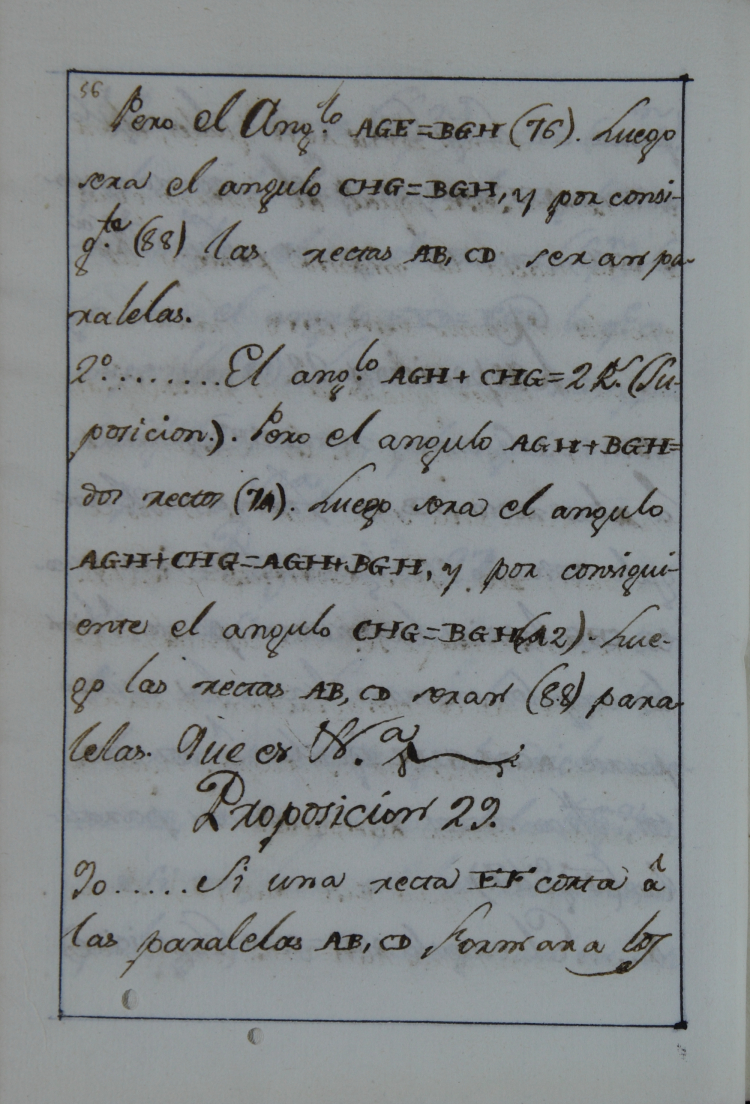 56
Pero el Ang.lo AGE=BGH (76). Luego
sera el angulo CHG=BGH, y por consi-
g.te (88) las rectas AB, CD seran pa-
ralelas.
2º........El ang.lo AGH+CHG=2 R.s (Su-
posicion.). Pero el angulo AGH+BGH=
dos rectos (74). Luego sera el angulo
AGH+CHG=AGH+BGH, y por consigui-
ente el angulo CHG=BGH (12). Lue-
go las rectas AB, CD seran (88) para-
lelas. Que es
Proposicion 29.
90.....Si una recta EF corta à
las paralelas AB, CD formara los